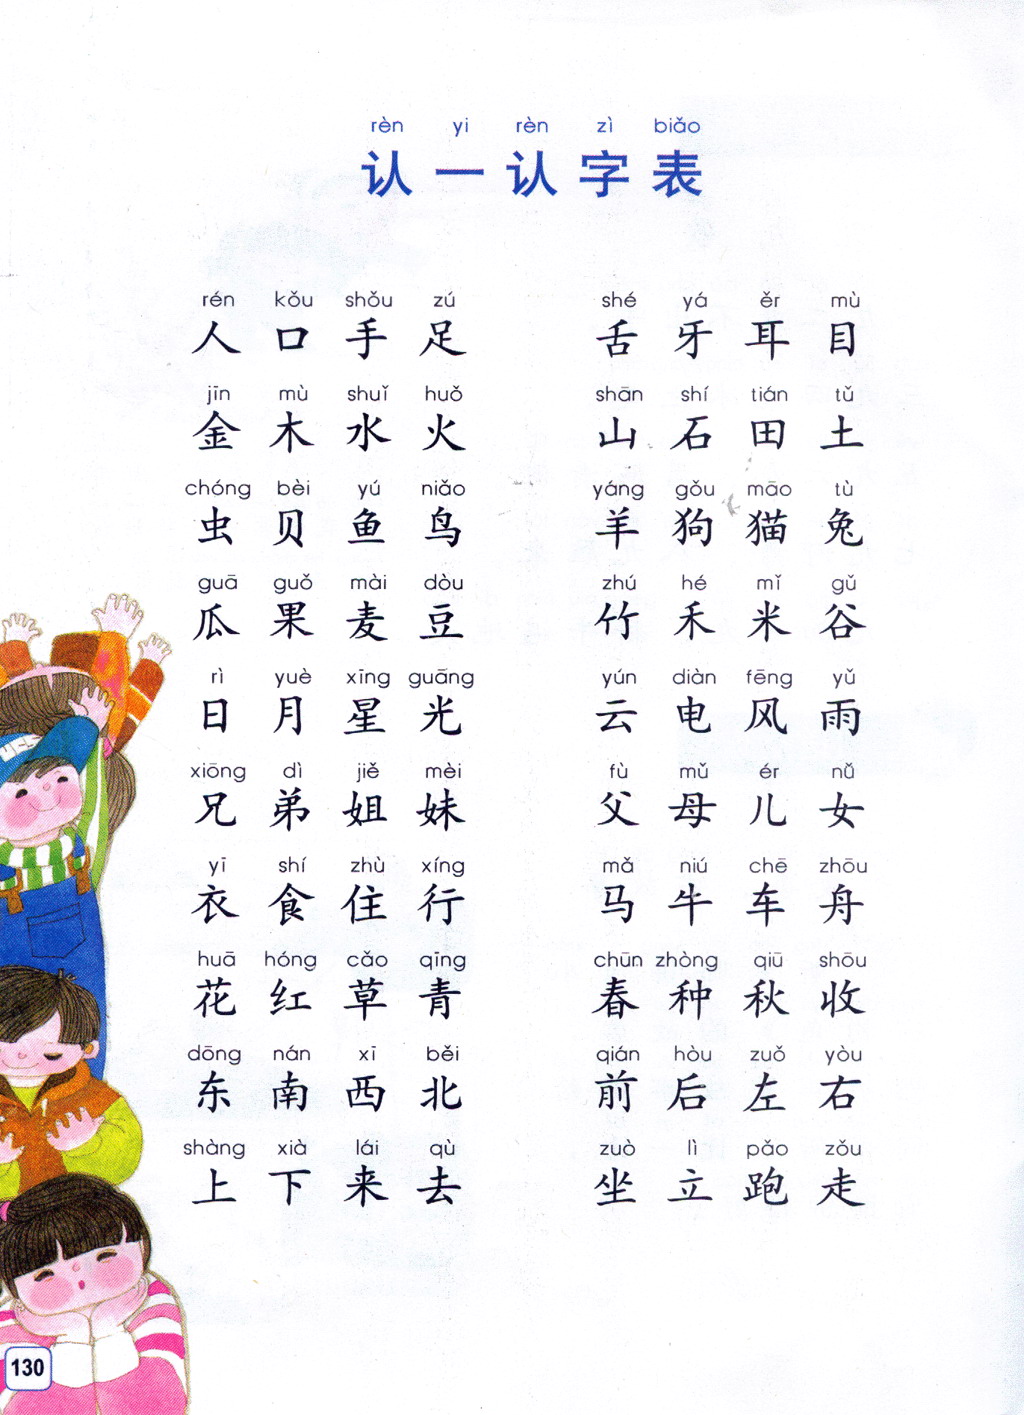 rèn yi rèn zì biǎo
认一认字表
rén kǒu shǒu zú shé yá ěr mù
人 口 手 足 舌 牙 耳 目
jīn mù shuǐ huǒ shān shí tián tǔ
金 木 水 火 山 石 田 土
chóng bèi yú niǎo yáng gǒu māo tù
虫 贝 鱼 鸟 羊 狗 猫 兔
guā guǒ mài dòu zhú hé mǐ gǔ
瓜 果 麦 豆 竹 禾 米 谷
rì yuè xīng guāng yún diàn fēng yǔ
日 月 星 光 云 电 风 雨
xiōng dì jiě mèi fù mǔ ér nǚ
兄 弟 姐 妹 父 母 儿 女
yī shí zhù xíng mǎ niú chē zhōu
衣 食 住 行 马 牛 车 舟
huā hóng cǎo qīng chūn zhòng qiū shōu
花 红 草 青 春 种 秋 收
dōng nán xī běi qián hòu zuǒ yòu
东 南 西 北 前 后 左 右
shàng xià lái qù zuò lì pǎo zǒu
上 下 来 去 坐 立 跑 走
130